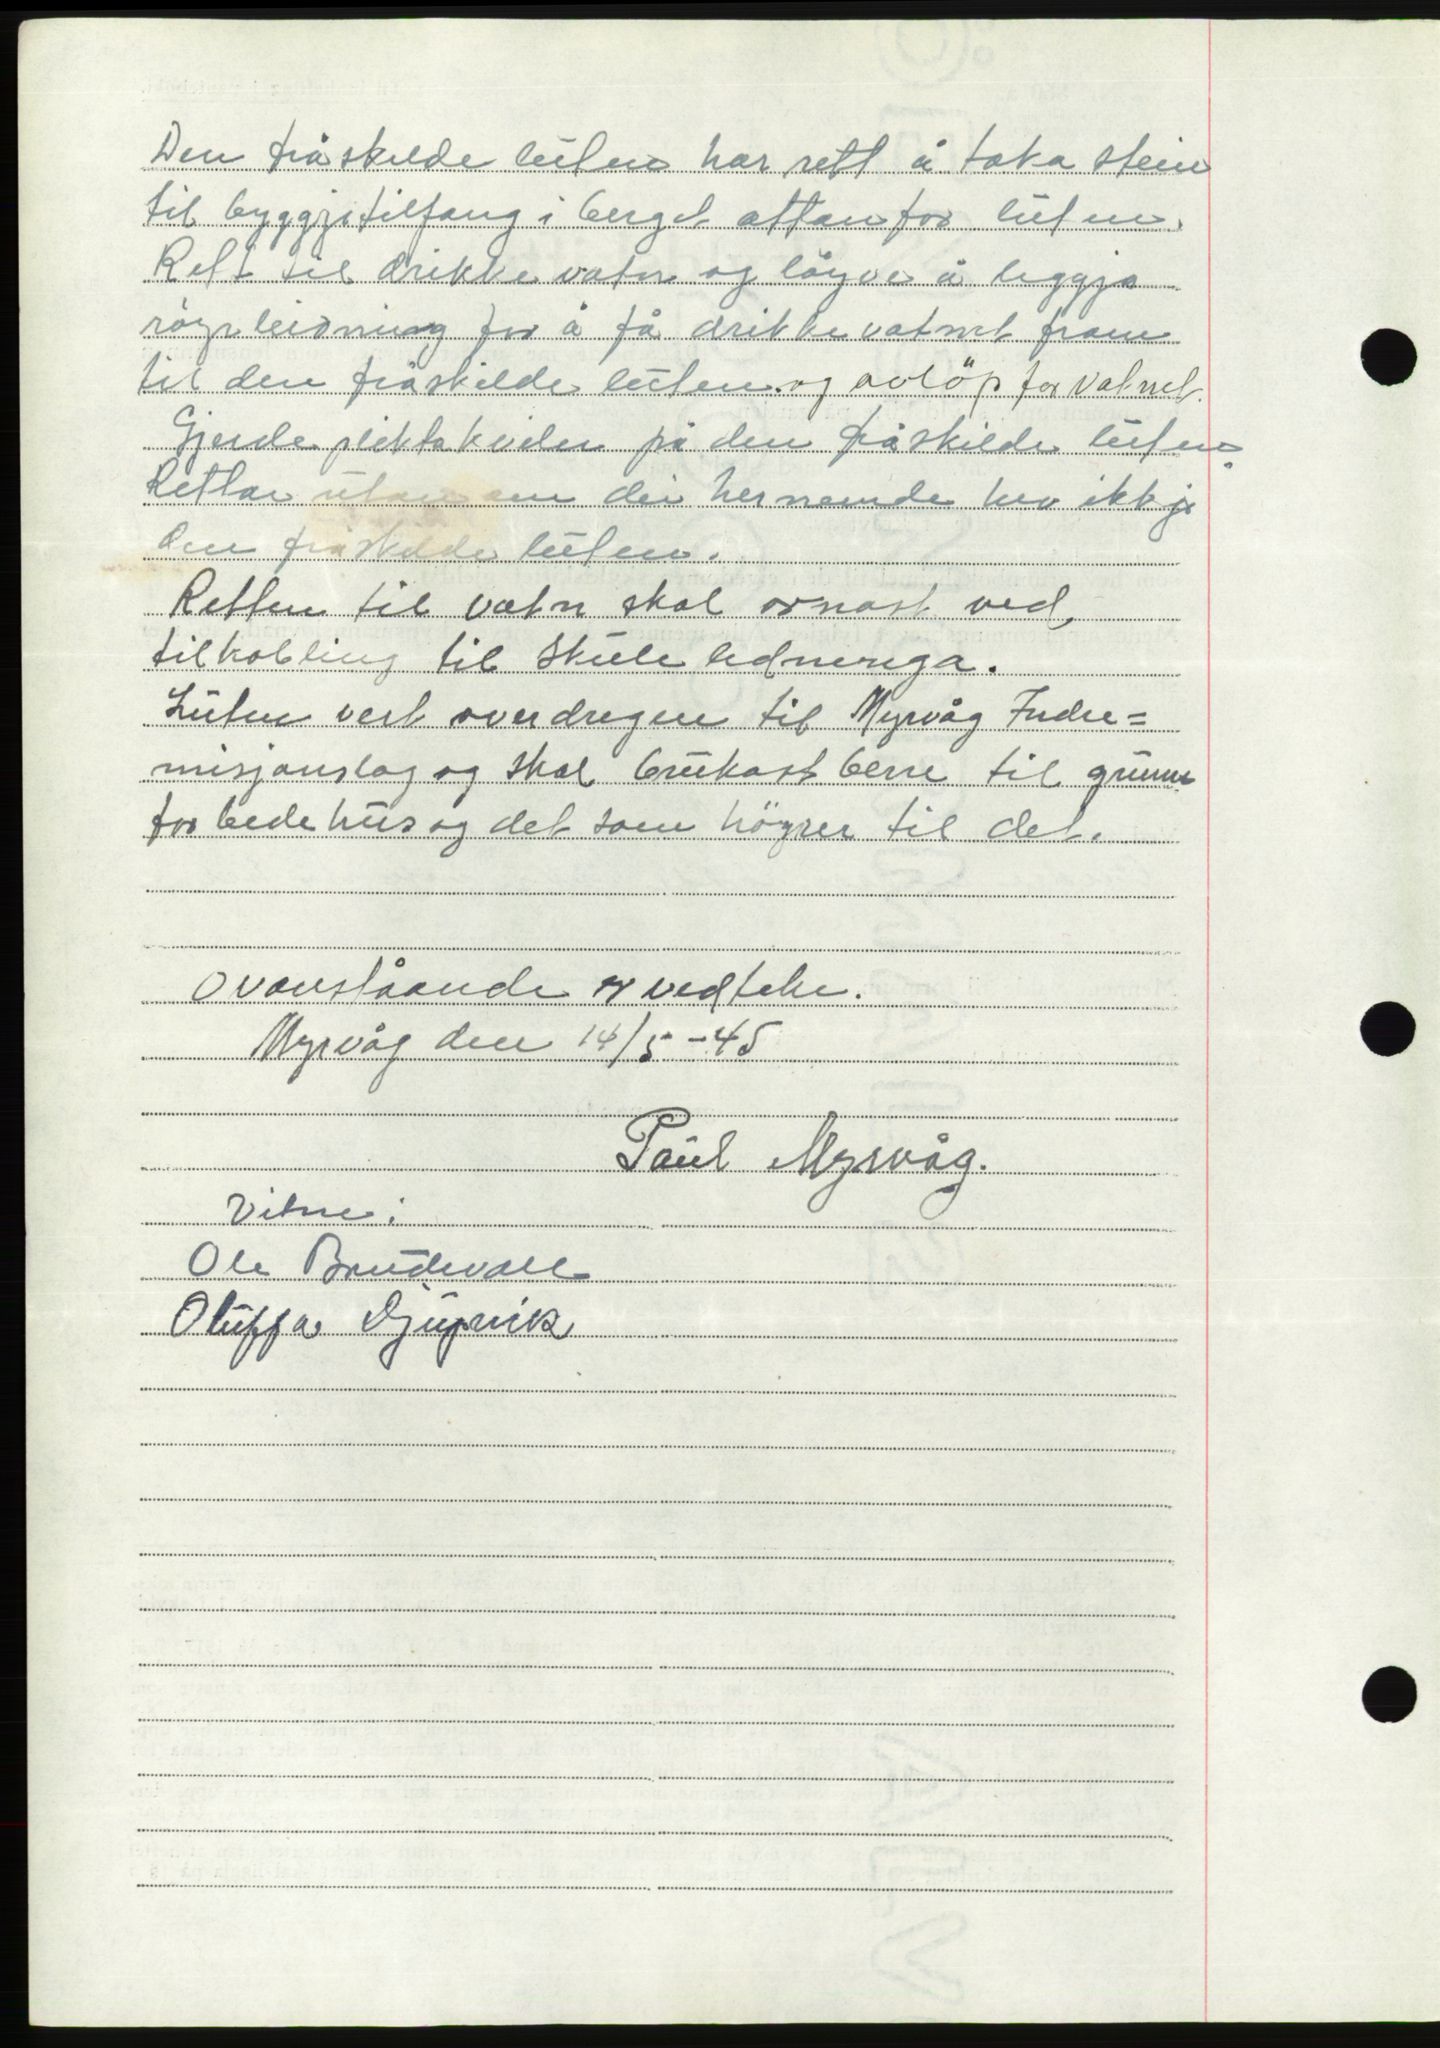 Den fråskilde luten har rett å taka stein
til byggjetilfang i berget attanfor luten.
Rett til drikkevatn og löyve å leggja
röyrleidning for å få drikkevatnet fram
til den fråskilde luten og avlöp for vatnet.
Gjerdepliktskviler på den fråskilde luten.
Rettar utanom dei hernemde hev ikkje
den fråskilde luten.
Retten til vatn skal ornast ved
tilkobling til skuleledneriga.
Luten vert overdregen til Myrvåg Indre=
misjonslag og skal brukast berre til grunn
for bedehus og det som höyrer til det.
Ovanståande er vedteke.
Myrvåg den 14/5-45
Paul Myrvåg.
Vitne:
Ole Brudevoll
Oluffa Djupvik